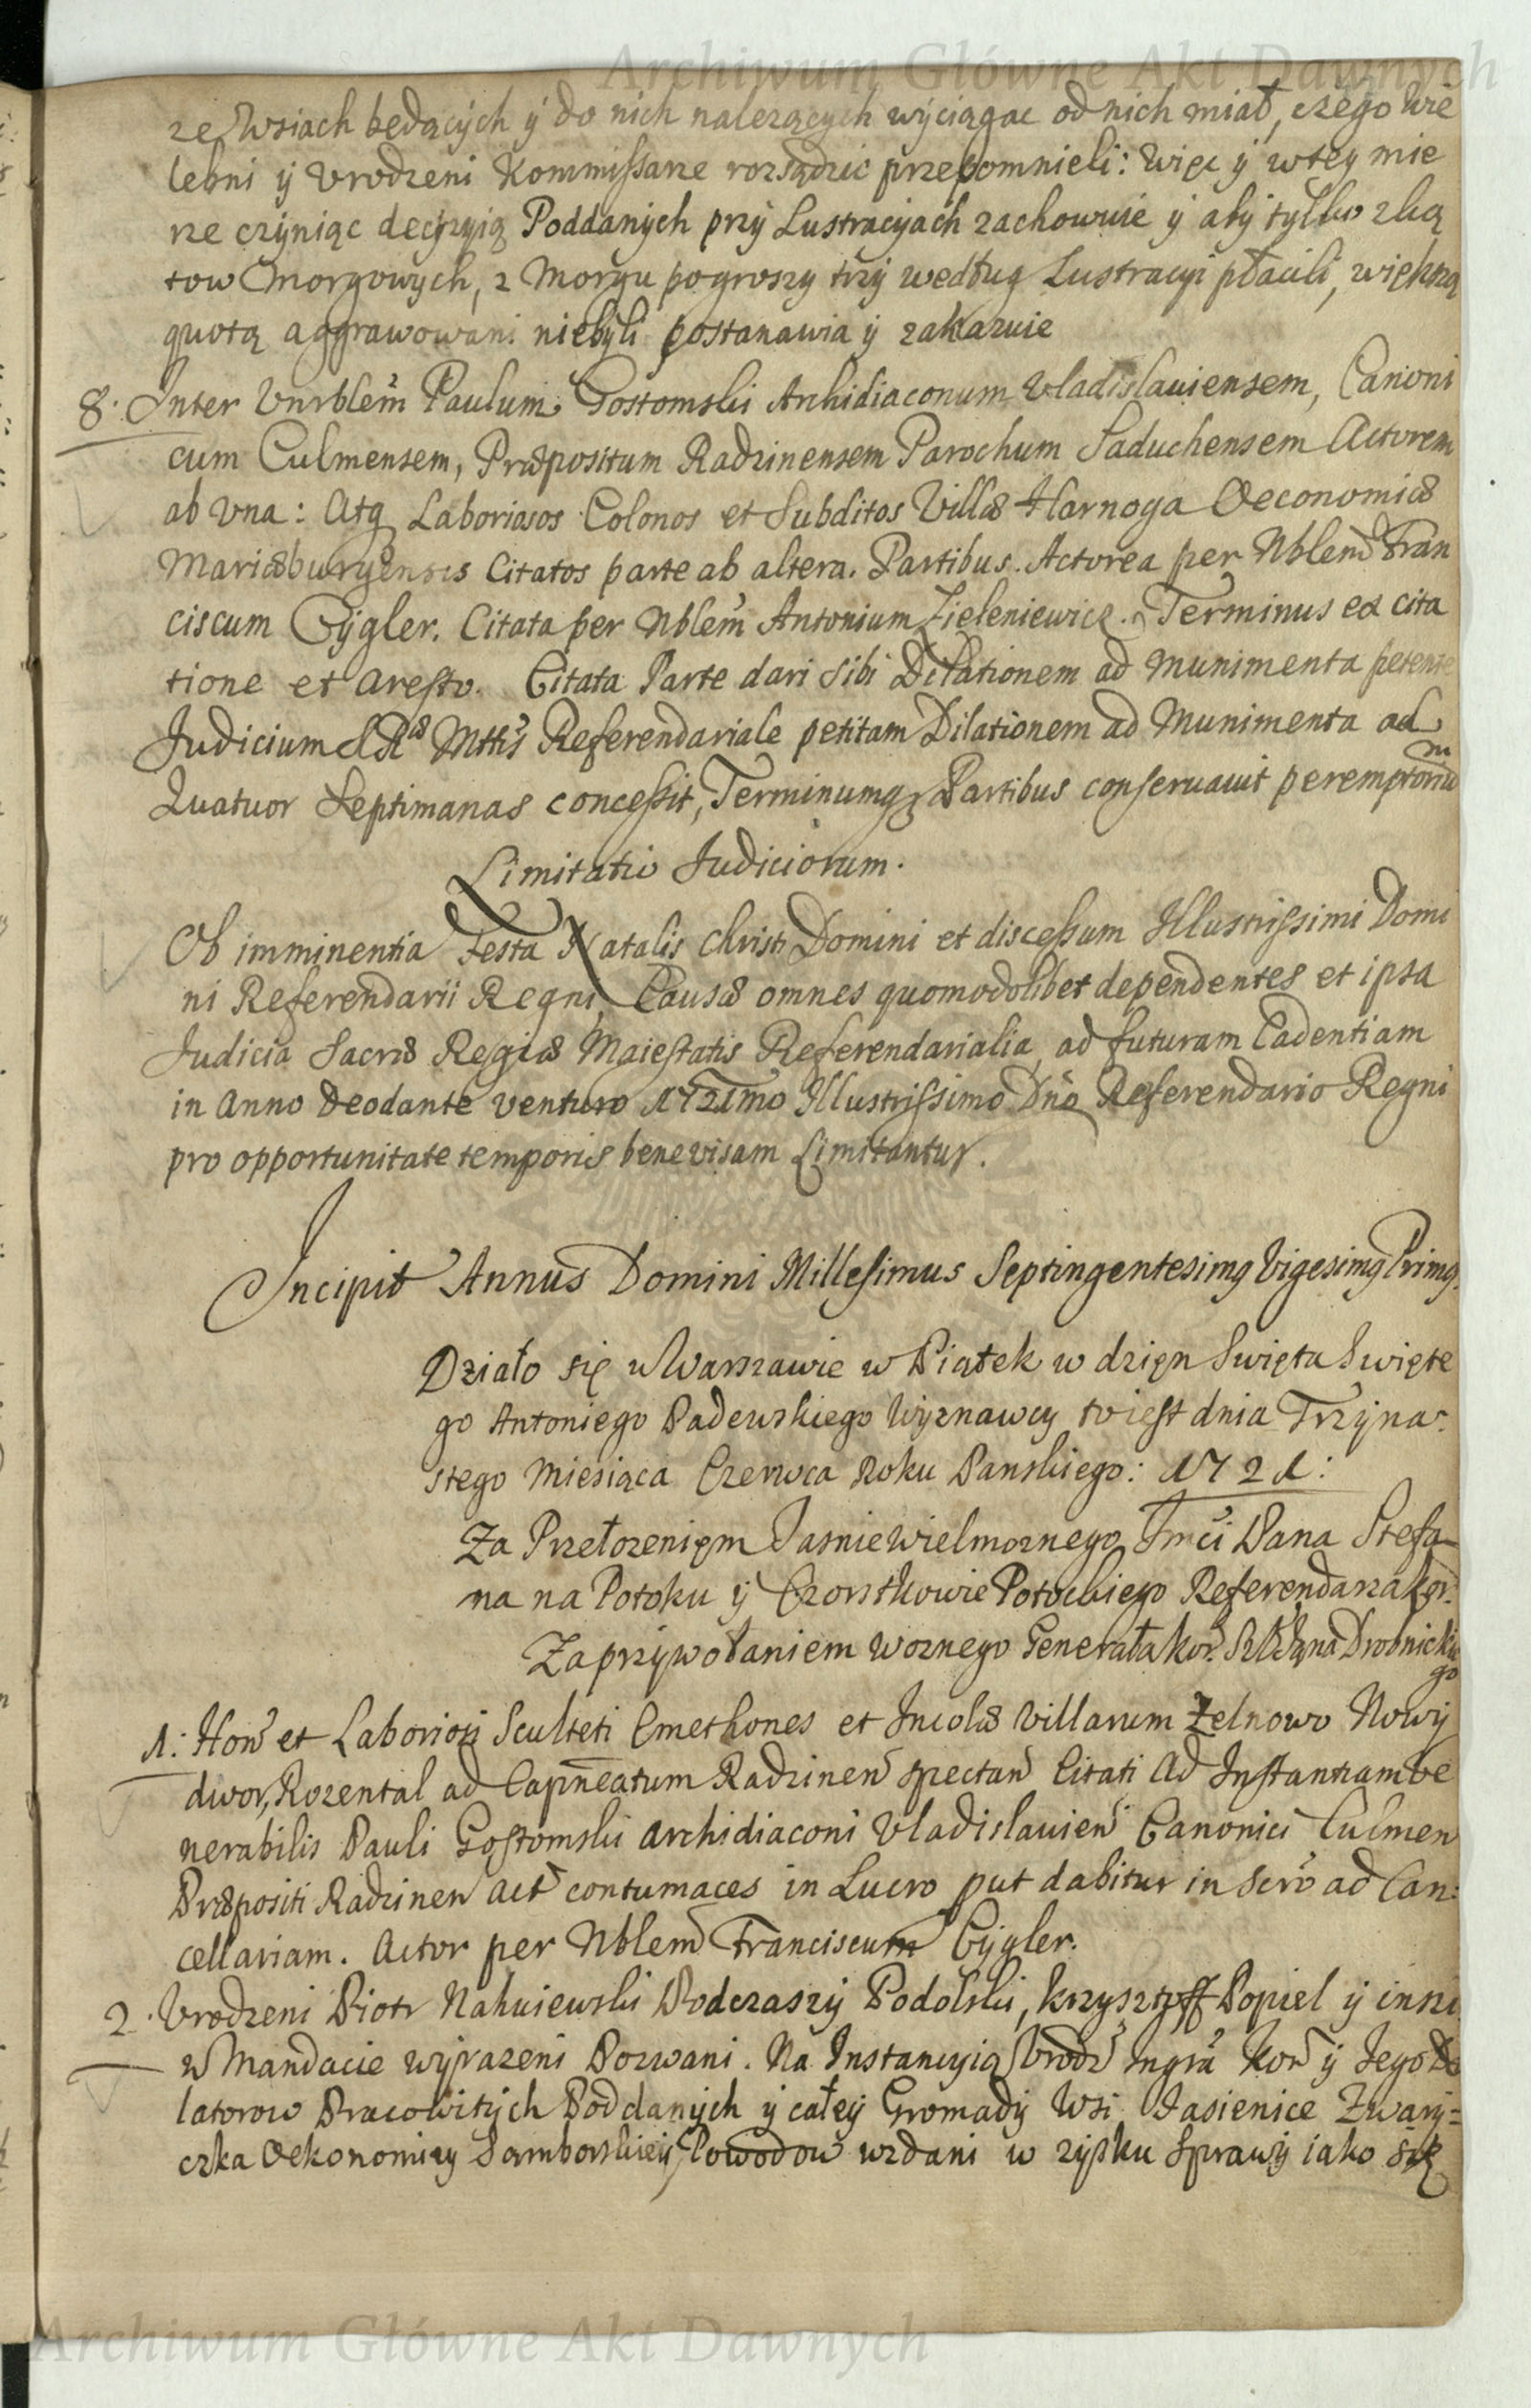 Archiwum Główne Akt Dawnych
ze wsiach będących ÿ do nich nalezących wyciągac od nich miał, czego Wie
lebni ÿ Vrodzeni Kommissarze rozsądzic przepomnieli: Więc ÿ wteÿ mie
rze czÿniąc decÿzyią Poddanÿch przÿ Lustracÿach zachowuie ÿ abÿ tÿlko z Łą
tow Morgowych, z Morgu po groszy trzÿ według Lustracyi płacili, większą
quotą aggrawowani niebÿli postanawia ÿ zakazuie
8. Inter Vnrblem̃ Paulum Gostomski Archidiaconum Vladislauiensem, Canoni
cum Culmensem, Præpositum Radzinensem Parochum Saduchensem Actorem
ab Vna: Atq Laboriosos Colonos et Subditos Villæ Harnoga Oeconomiæ
Mariæburgensis Citatos parte ab altera. Partibus. Actorea per Nblem̃ Fran
ciscum Cÿgler. Citata per Nblem̃ Antonium Zieleniewicz. Terminus ex cita
tione et Aresto. Citata Parte dari sibi Dilationem ad Munimenta petente
Judicium SRæ Mttis Referendariale petitam Dilationem ad Munimenta ad
Quatuor Septimanas concessit, Terminumq Partibus conseruauit peremptoriũm
Limitatio Judiciorum.
Ob imminentia Festa Natalis Christi Domini et discessum Illustrissimi Domi
ni Referendarii Regni, Causæ omnes quomodolibet dependentes et ipsa
Judicia Sacræ Regiæ Maiestatis Referendarialia, ad futuram Cadentiam
in Anno Deodante venturo 1721mo Illustrissimo Dño Referendario Regni
pro opportunitate temporis benevisam Limitantur.
Incipit Annus Domini Millesimus Septingentesimq Vigesimq Primq.
Działo się w Warszawie w Piątek w dzięn Swięta Swięte
go Antoniego Padewskiego Wÿznawcy to iest dnia Trzÿna-
stego Miesiąca Czerwca Roku Panskiego: 1721:
Za Przełozenięm Jasnie Wielmoznego Jmci Pana Stefa
na na Potoku ÿ Czorstkowie Potockiego Referendarza Kor.
Za przÿwołaniem Woznego Generała Kor. Drobnickie
go
1: Hon̄ et Laboriosi Sculteti Cmethones et Incolæ Villarum Zelnowo Nowÿ
dwor, Rozental ad Capn̄eatum Radzinen̄ spectan̄ Citati Ad Instantiam Ve
nerabilis Pauli Gostomski Archidiaconi Vladislauien̄ Canonici Culmen
Præpositi Radzinen Act̄ contumaces in Lucro put dabitur in Scr̄o ad Can:
cellariam. Actor per Nblem̄ Franciscum Cÿgler.
2. Vrodzeni Piotr Nahuiewski Podczaszÿ Podolski, Krzÿsztoff Popiel ÿ inszi
w Mandacie wÿrazeni Pozwani. Na Instancyią Vrodz̄ Ingrã Kor̄ ÿ Jego De
latorow Pracowitÿch Poddanÿch ÿ całeÿ Gromadÿ Wsi Jasienice Zwarÿ=
czka Oekonomiey Samborskieÿ, Powodow wzdani w zÿsku Sprawÿ iako się
Archiwum Główne Akt Dawnych